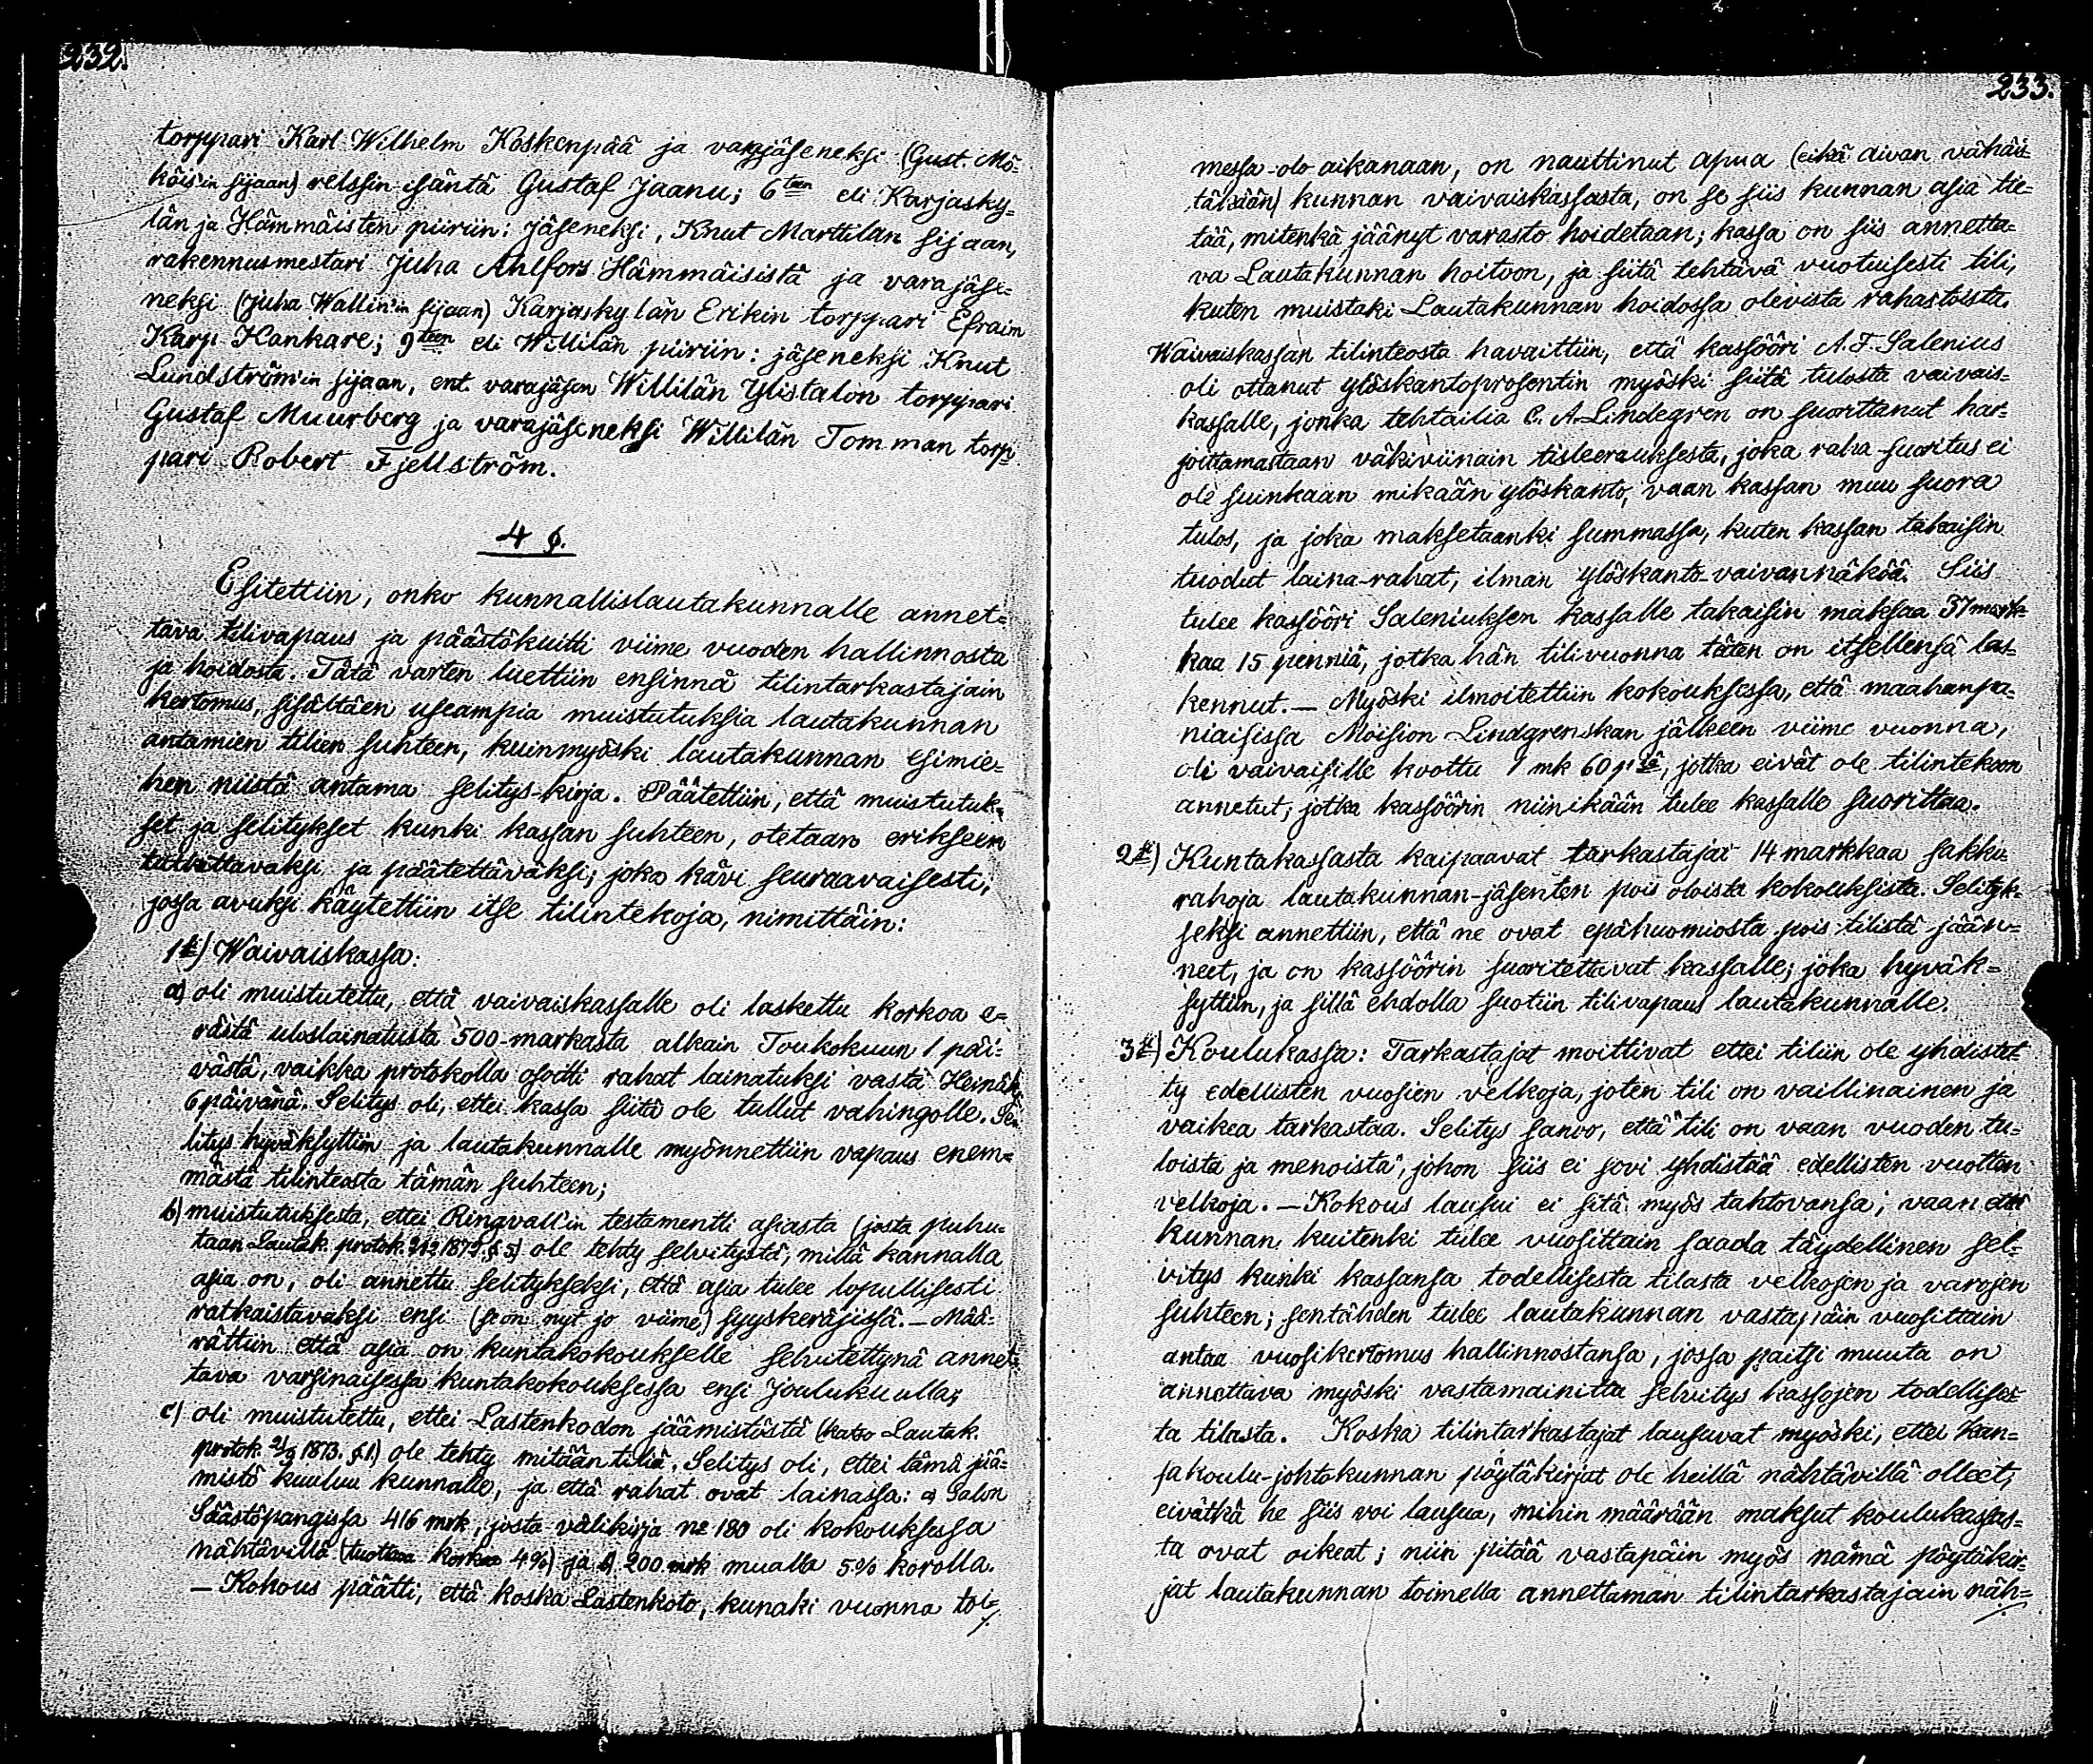 232.
torppari Karl Wilhelm Koskenpää ja varajäseneksi (Gust. Mö-
köis'in sijaan) relssin-isäntä Gustaf Jaanu; 6teen eli Karjasky-
län ja Hämmäisten piiriin: jäseneksi, Knut Marttilan sijaan,
rakennusmestari Juha Ahlfors Hämmäisistä ja varajäse-
neksi (Juha Wallin'in sijaan) Karjaskylän Erikin torppari Efraim
Karp Hankare; 9teen eli Willilän piiriin: jäseneksi Knut
Lundström'in sijaan, ent. varajäsen Willilän Ylistalon torppari
Gustaf Muurberg ja varajäseneksi Willilän Tomman torp
pari Robert Fjellström.
4 §.
Esitettiin, onko kunnallislautakunnalle annet-
tava tilivapaus ja päästökuitti viime vuoden hallinnosta
ja hoidosta. Tätä varten luettiin ensinnä tilintarkastajain
kertomus, sisältäen useampia muistutuksia lautakunnan
antamien tilien suhteen, kuinmyöski lautakunnan esimie-
hen niistä antama selitys-kirja. Päätettiin, että muistutuk-
set ja selitykset kunki kassan suhteen, otetaan erikseen
tutkittavaksi ja päätettäväksi; joko kävi seuraavaisesti,
jossa avuksi käytettiin itse tilintekoja, nimittäin:
1ksi) Waivaiskassa:
a) oli muistutettu, että vaivaiskassalle oli laskettu korkoa e-
rästä uloslainatusta 500-markasta alkain Toukokuun 1 päi-
västä, vaikka protokolla osotti rahat lainatuksi vasta Heinäk.
6 päivänä. Selitys oli, ettei kassa siitä ole tullut vahingolle. Se-
litys hyväksyttiin ja lautakunnalle myönnettiin vapaus enem-
mästä tilinteosta tämän suhteen;
b) muistutuksesta, ettei Ringvall'in testamentti asiasta (josta puhu-
taan Lautak. protok. 1873. § 5) ole tehty selvitystä, millä kannalla
asia on, oli annettu selitykseksi, että asia tulee lopullisesti
ratkaistavaksi ensi (se on nyt jo viime) syyskeräjissä. — Mää-
rättiin että asia on kuntakokoukselle selvitettynä annet-
tava varsinaisessa kuntakokouksessa ensi Joulukuulla;
c) oli muistutettu, ettei Lastenkodon jäämistöstä (katso Lautak.
protok. 2/3 1873. § 1.) ole tehty mitään tiliä. Selitys oli, ettei tämä jää-
mistö kuuluu kunnalle, ja että rahat ovat lainassa: a) Salon
Säästöpangissa 416 mrk, josta välikirja № 180 oli kokouksessa
nähtävillä (tuottava korkoa 4%) ja b) 200 mrk muualla 5% korolla.
— Kokous päätti, että koska Lastenkoto, kunaki vuonna toi-
233.
messa-olo aikanaan, on nauttinut apua (eikä aivan vähää-
täkään) kunnan vaivaiskassasta, on se siis kunnan asia tie-
tää, mitenkä jäänyt varasto hoidetaan; kassa on siis annetta-
va Lautakunnan hoitoon, ja siitä tehtävä vuotuisesti tili,
kuten muistaki Lautakunnan hoidossa olevista rahastoista.
Waivaiskassan tilinteosta havaittiin, että kassööri A. F. Salenius
oli ottanut ylöskantoprosentin myöski siitä tulosta vaivais-
kassalle, jonka tehtailia C. A. Lindegren on suorittanut har-
joittamastaan väkiviinain tisleerauksesta, joka raha-suoritus ei
ole suinkaan mikään ylöskanto, vaan kassan muu suora
tulos, ja joka maksetaanki summassa, kuten kassan takaisin
tuodut laina-rahat, ilman ylöskanto-vaivannäköä. Siis
tulee kassööri Saleniuksen kassalle takaisin maksaa 37 mark-
kaa 15 penniä, jotka hän tilivuonna täten on itsellensä las-
kennut. — Myöski ilmoitettiin kokouksessa, että maahanpa-
niaisissa Moision Lindgrenskan jälkeen viime vuonna,
oli vaivaisille koottu 1 mk 60 p:iä, jotka eivät ole tilintekoon
annetut; jotka kassöörin niinikään tulee kassalle suorittaa.
2ksi) Kuntakassasta kaipaavat tarkastajai 14 markkaa sakko-
rahoja lautakunnan-jäsenten pois oloista kokouksista. Selityk-
seksi annettiin, että ne ovat epähuomiosta pois tilistä jään-
neet, ja on kassöörin suoritettavat kassalle; joka hyväk-
syttiin, ja sillä ehdolla suotiin tilivapaus lautakunnalle.
3ksi) Koulukassa: Tarkastajat moittivat ettei tiliin ole yhdistet-
ty edellisten vuosien velkoja, joten tili on vaillinainen ja
vaikea tarkastaa. Selitys sanoo, että "tili on vaan vuoden tu-
loista ja menoista", johon siis ei sovi yhdistää edellisten vuotten
velkoja. — Kokous lausui ei sitä myös tahtovansa; vaan että
kunnan kuitenki tulee vuosittain saada täydellinen sel-
vitys kunki kassansa todellisesta tilasta velkojen ja varojen
suhteen; sentähden tulee lautakunnan vastapäin vuosittain
antaa vuosikertomus hallinnostansa, jossa paitsi muuta on
annettava myöski vastamainittu selvitys kassojen todellises-
ta tilasta. Koska tilintarkastajat lausuvat myöski, ettei kan-
sakoulu-johtokunnan pöytäkirjat ole heillä nähtävillä olleet,
eivätkä he siis voi lausua, mihin määrään maksut koulukassas-
ta ovat oikeat; niin pitää vastapäin myös nämä pöytäkir-
jat lautakunnan toimella annettaman tilintarkastajain näh-